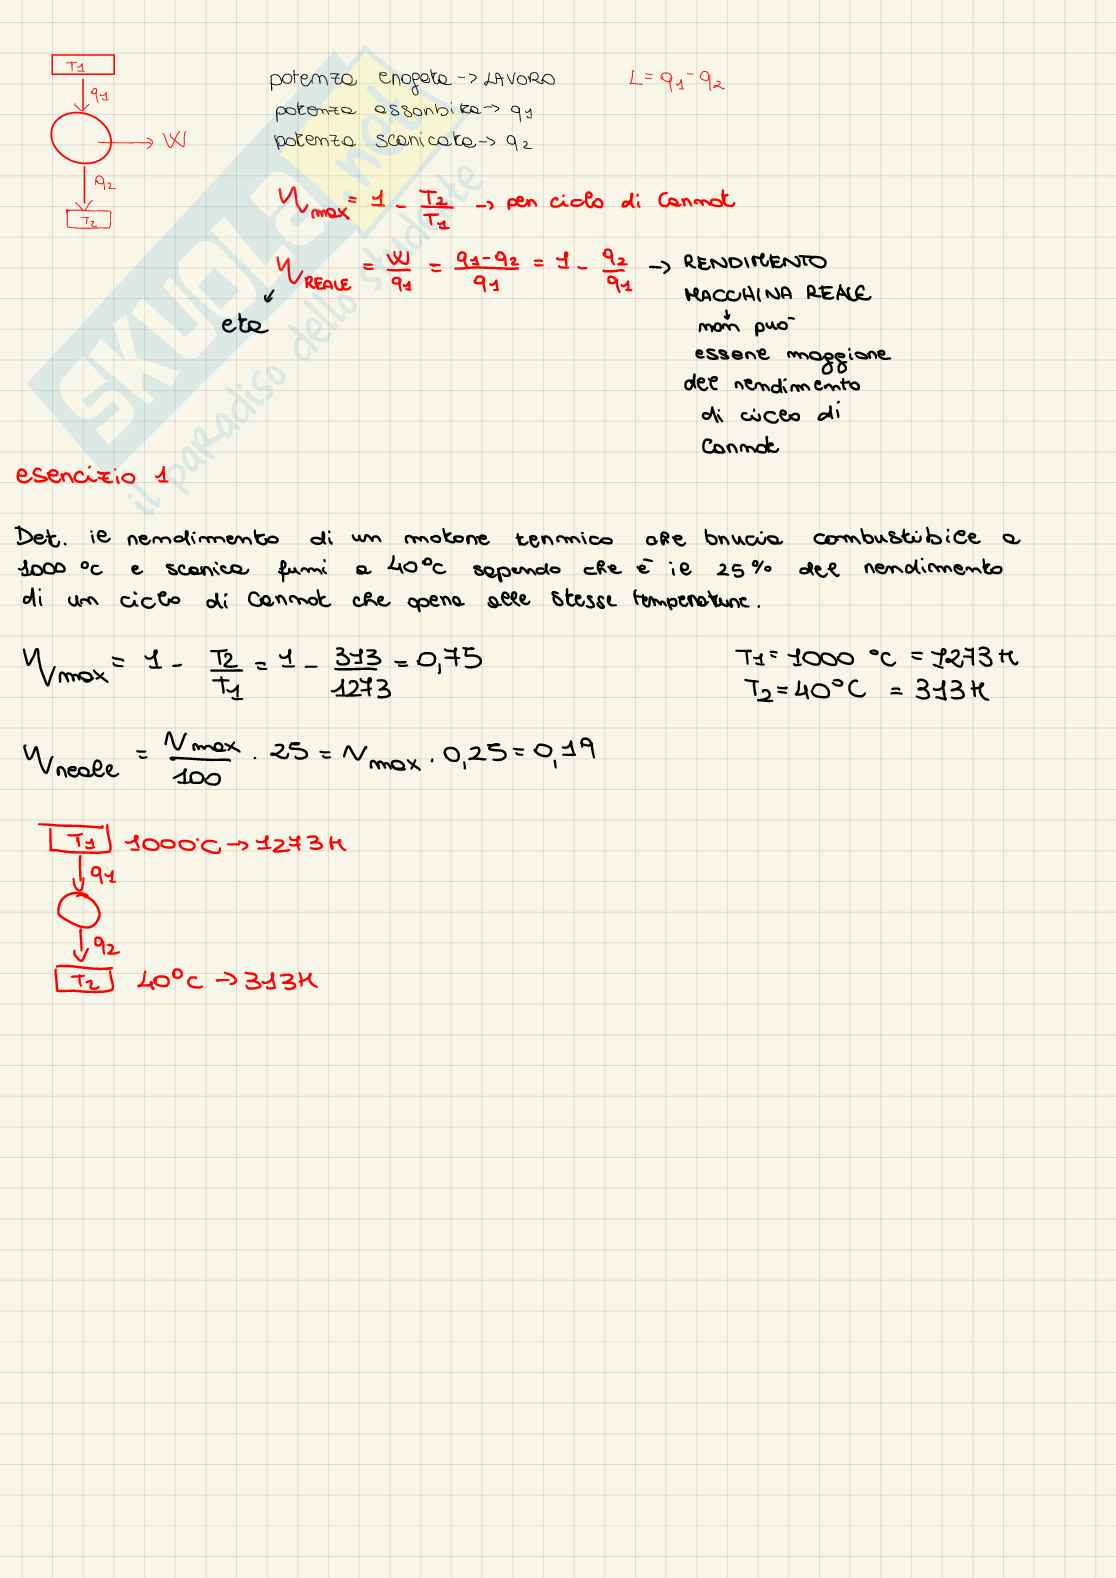 T1
q1
W
q2
T2
potenza erogata -> LAVORO
L = q1 - q2
potenza assorbita -> q1
potenza scaricata -> q2
ηmax = 1 - T2/T1 -> per ciclo di Carnot
ηREALE = W/q1 = q1-q2/q1 = 1 - q2/q1 -> RENDIMENTO
MACCHINA REALE
eta
non può
essere maggiore
del rendimento
di ciclo di
Carnot
SKUOLA.net
il paradiso dello studente
esercizio 1
Det. il rendimento di un motore termico che brucia combustibile a
1000 °C e scarica fumi a 40°C sapendo che è il 25% del rendimento
di un ciclo di Carnot che opera alle stesse temperature.
ηmax = 1 - T2/T1 = 1 - 313/1273 = 0,75
T1 = 1000 °C = 1273 K
T2 = 40°C = 313 K
ηreale = ηmax/100 . 25 = ηmax . 0,25 = 0,19
T1 1000°C -> 1273 K
q1
q2
T2 40°C -> 313 K